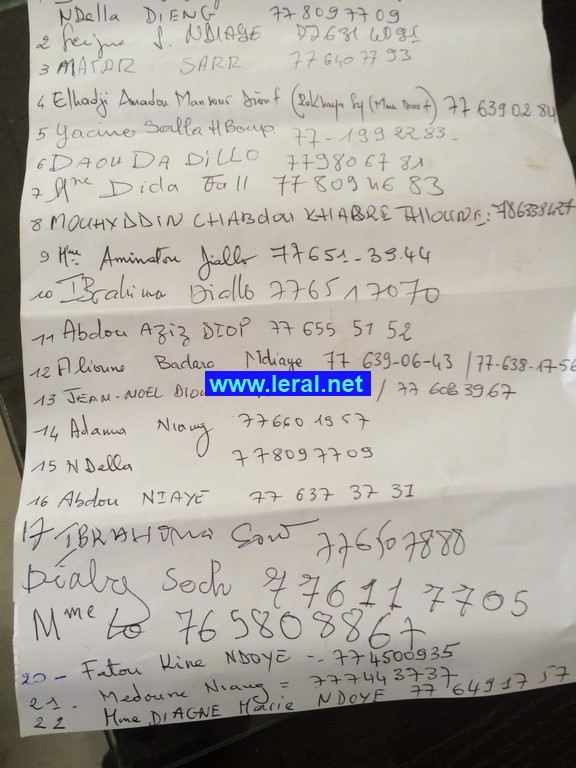 NDella DIENG 77 809 77 09
2 S. NDIAYE
3 MATAR SARR 77 640 77 93
4 Elhadji Amadou Mansour Diouf (Sy (Mme Diouf) 77 639 02 84
5 Yacine HBoup 77-199 22 83-
6 DAOUDA DiLLO 77 980 67 81
7 Mme Dida Fall 77 809 46 83
8 MOUHYDDIN CHABdou KHABRE
9 Mme Aminatou Diallo 77651-39.44
10 IBrahima Diallo 776517070
11 Abdou AZiZ DIOP 77 655 51 52
12 Alioune Badara Ndiaye 77 639-06-43 / 77-638-17-56
13 JEAN-NOEL / 77 608 39 67
www.leral.net
14 Adama Niang 77660 19 57
15 NDella 778097709
16 Abdou NIAYE 77 637 37 31
17 IBRAHIMA Sow 776507888
Dialy Sech 776117705
Mme 765808867
20 - Fatou Kine NDOYE -. 774500935
21 - Medoune Niang = 777443737
22 Mme DIAGNE Marie NDOYE 77 649 17 57